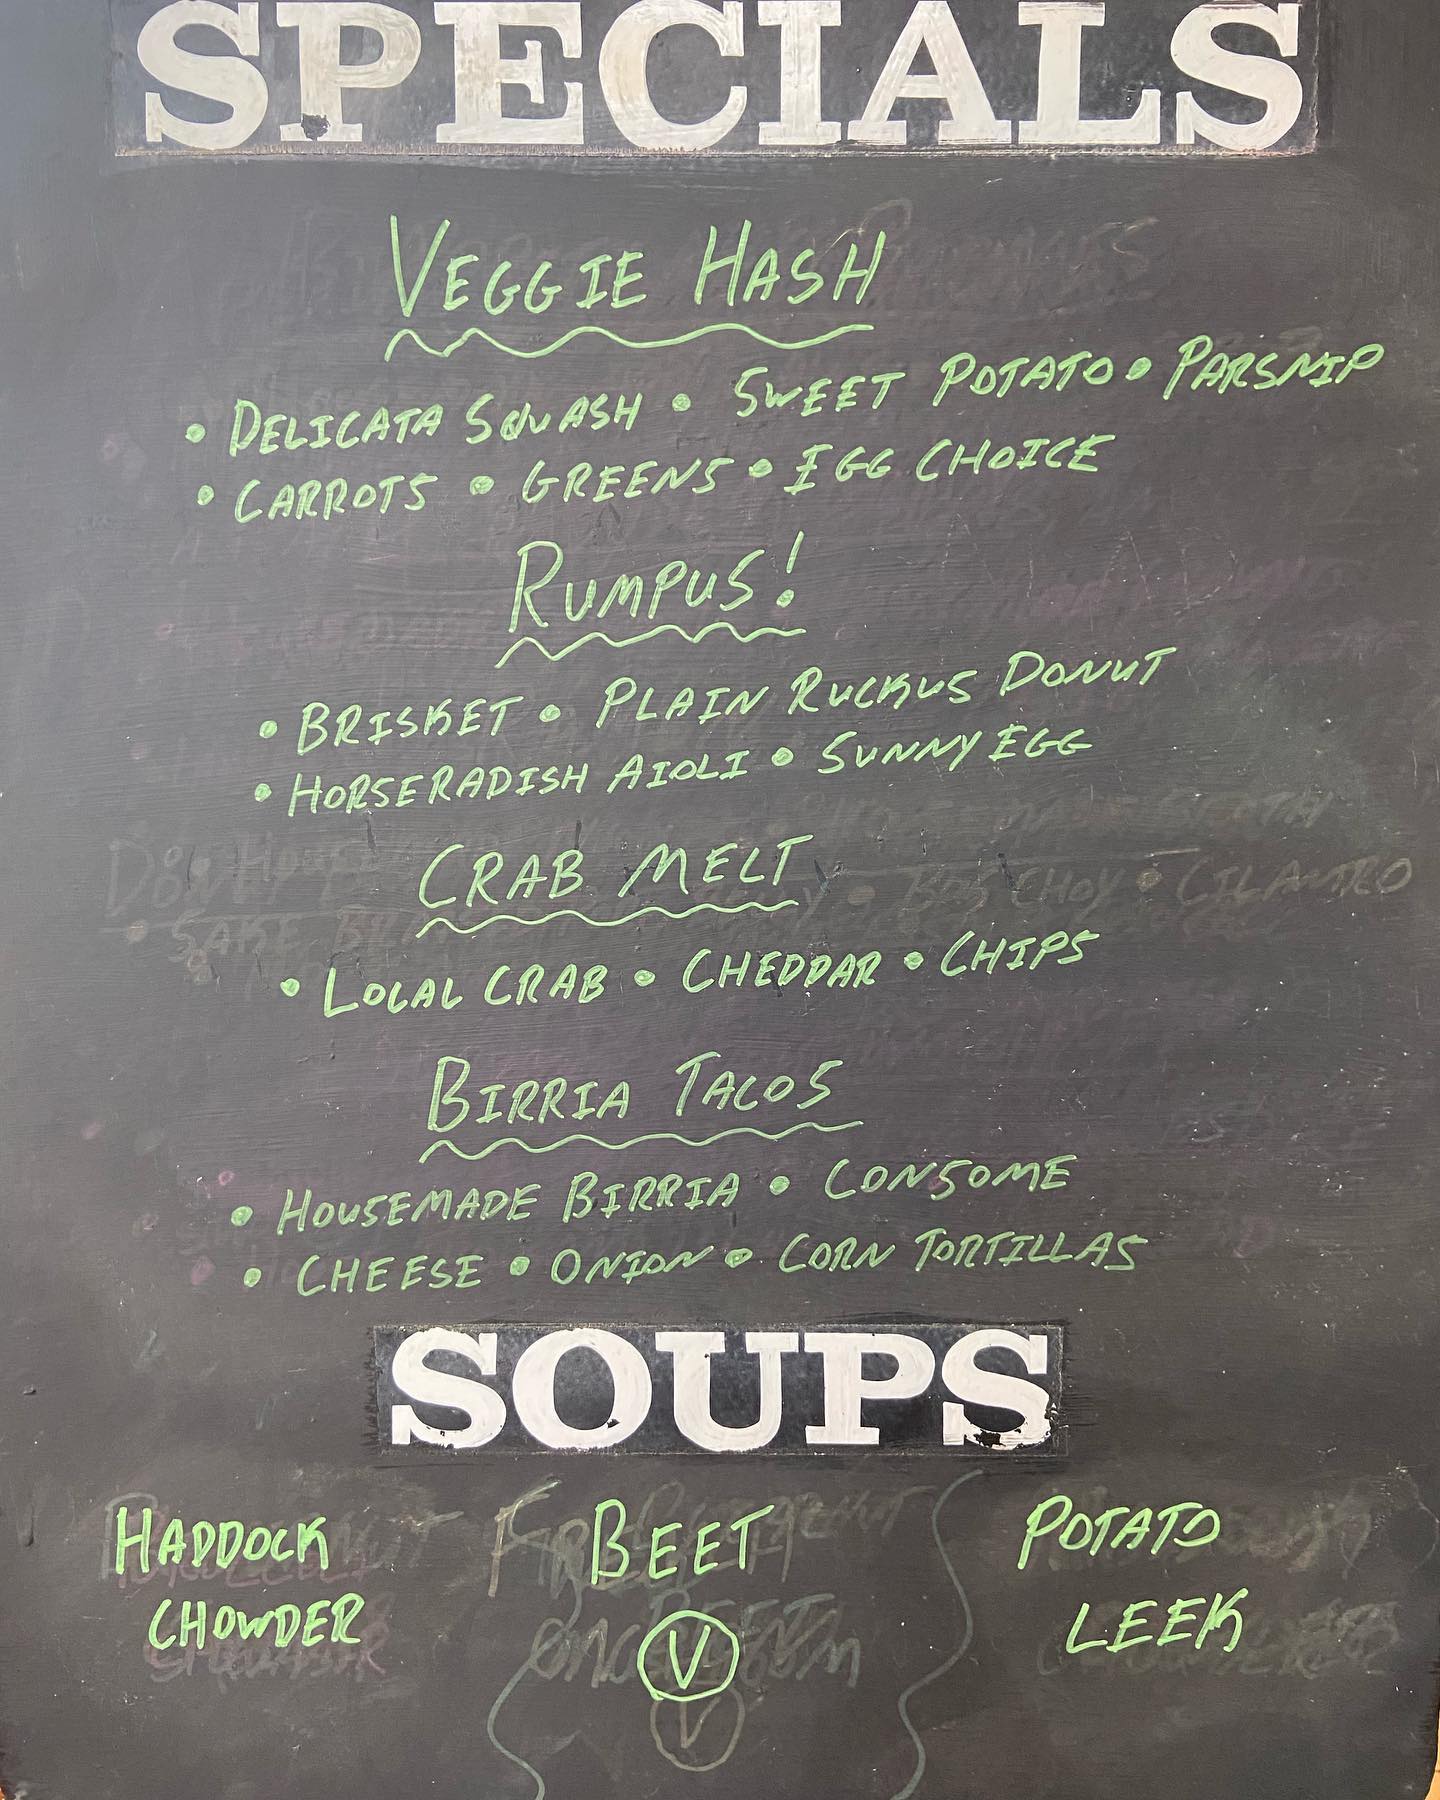 SPECIALS
VEGGIE HASH
• DELICATA SQUASH • SWEET POTATO • PARSNIP
• CARROTS • GREENS • EGG CHOICE
RUMPUS!
• BRISKET • PLAIN RUCKUS DONUT
• HORSERADISH AIOLI • SUNNY EGG
CRAB MELT
• LOCAL CRAB • CHEDDAR • CHIPS
BIRRIA TACOS
• HOUSEMADE BIRRIA • CONSOME
• CHEESE • ONION • CORN TORTILLAS
SOUPS
HADDOCK CHOWDER
BEET
V
POTATO LEEK